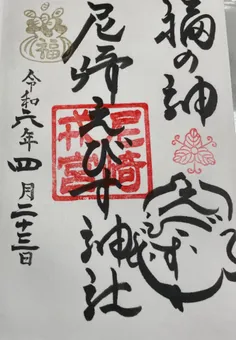 福の神
尼崎えびす神社
令和六年四月二十三日
福
えびす